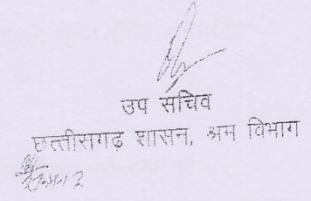 उप सचिव
छत्तीसगढ़ शासन, श्रम विभाग